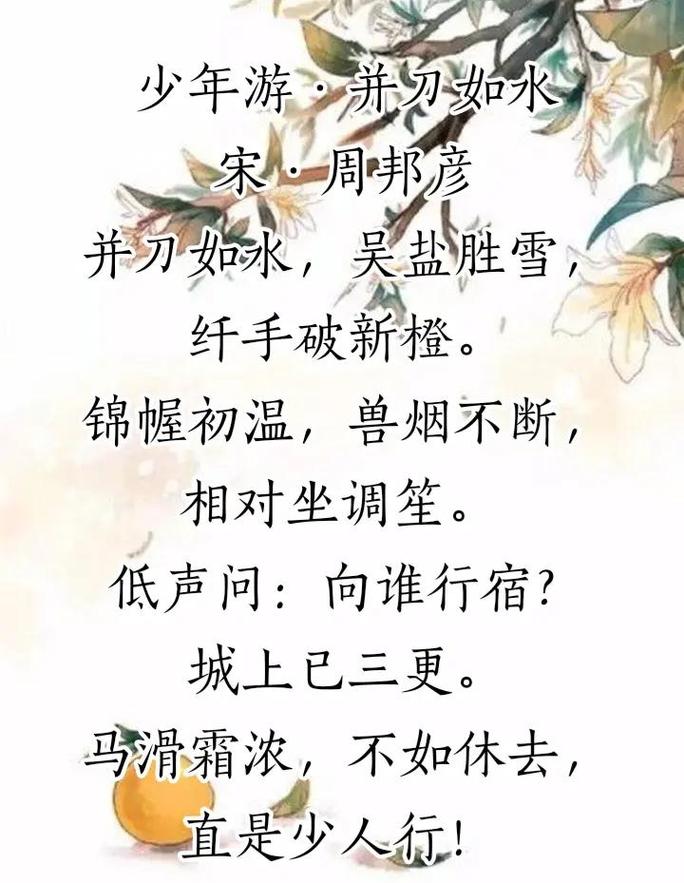 少年游·并刀如水
宋·周邦彦
并刀如水，吴盐胜雪，
纤手破新橙。
锦幄初温，兽烟不断，
相对坐调笙。
低声问：向谁行宿？
城上已三更。
马滑霜浓，不如休去，
直是少人行！